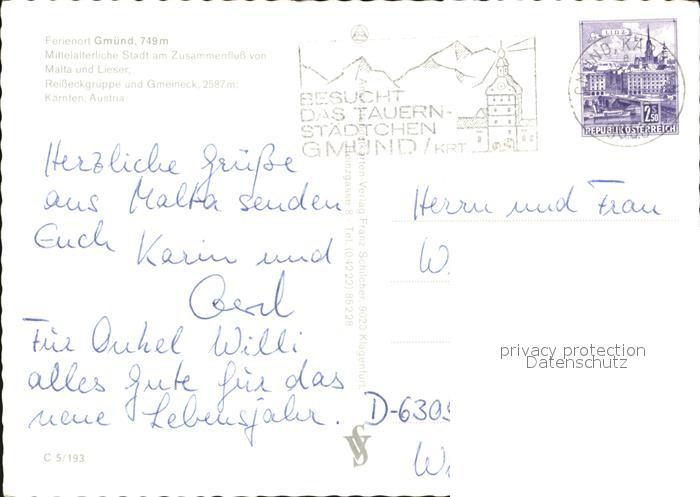 Ferienort Gmünd, 749 m
Mittelalterliche Stadt am Zusammenfluß von
Malta und Lieser,
Reißeckgruppe und Gmeineck, 2587m;
Kärnten, Austria
BESUCHT
DAS TAUERN-
STÄDTCHEN
GMÜND/KRT.
LINZ
2.50
REPUBLIK ÖSTERREICH
Herzliche Grüße
aus Malta senden
Euch Karin und
Gerd
Für Onkel Willi
alles Gute für das
neue Lebensjahr.
Verlag Franz Schilcher, 9020 Klagenfurt
Tel. (04222) 86228
Herrn und Frau
W.
D-6309
W
privacy protection
Datenschutz
C 5/193